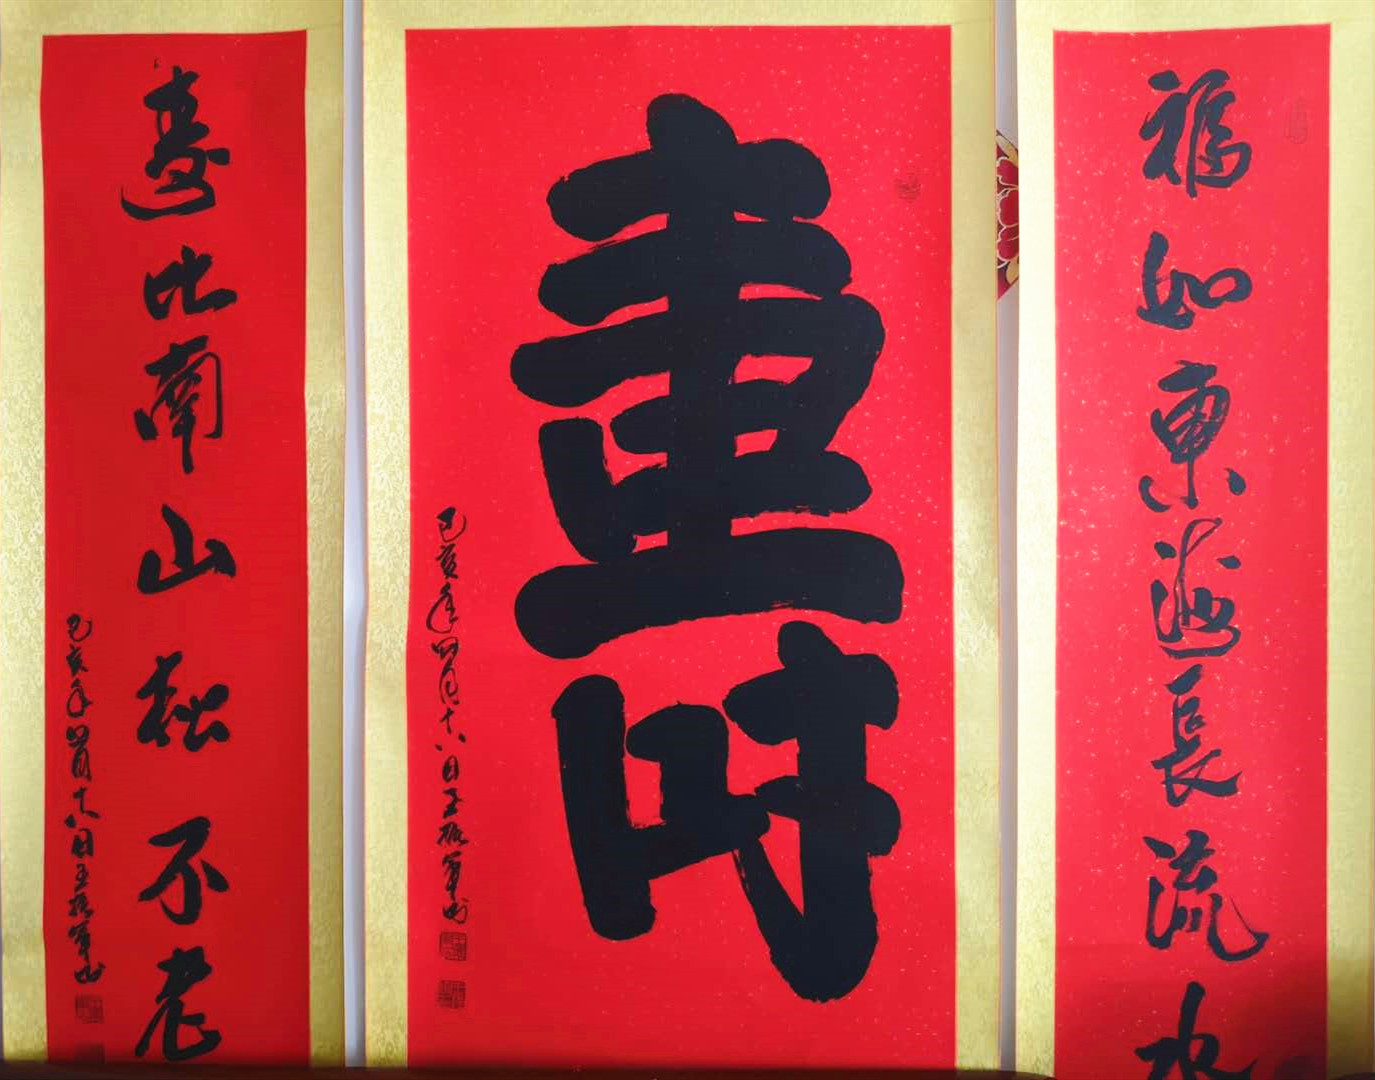 福如東海長流水
壽
己亥年四月十八日王振軍書
壽比南山松不老
己亥年四月十八日王振軍書